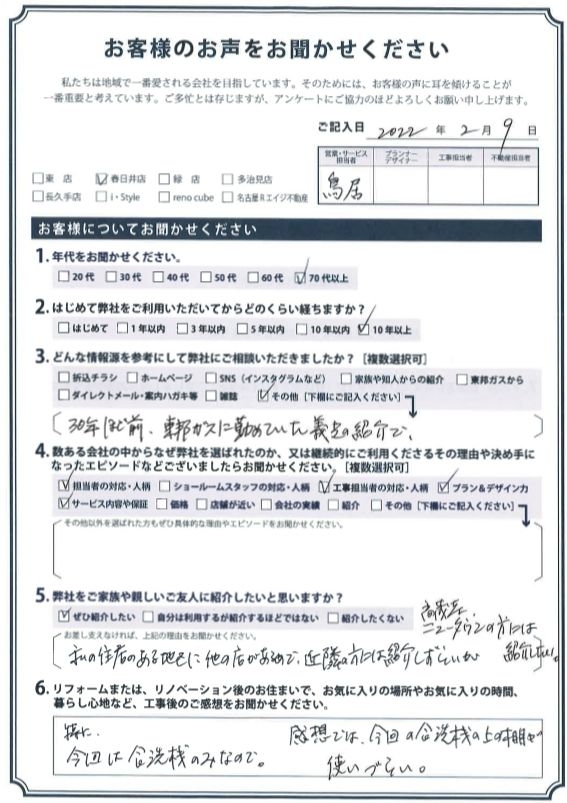 お客様のお声をお聞かせください
私たちは地域で一番愛される会社を目指しています。そのためには、お客様の声に耳を傾けることが
一番重要と考えています。ご多忙とは存じますが、アンケートにご協力のほどよろしくお願い申し上げます。
ご記入日 2022 年 2 月 9 日
営業・サービス担当者 プランナーデザイナー 工事担当者 不動産担当者
鳥居
□東 店 ☑春日井店 □緑 店 □多治見店
□長久手店 □i・Style □reno cube □名古屋Rエイジ不動産
お客様についてお聞かせください
1. 年代をお聞かせください。
□20代 □30代 □40代 □50代 □60代 ☑70代以上
2. はじめて弊社をご利用いただいてからどのくらい経ちますか？
□はじめて □1年以内 □3年以内 □5年以内 □10年以内 ☑10年以上
3. どんな情報源を参考にして弊社にご相談いただきましたか？［複数選択可］
□折込チラシ □ホームページ □SNS（インスタグラムなど） □家族や知人からの紹介 □東邦ガスから
□ダイレクトメール・案内ハガキ等 □雑誌 ☑その他［下欄にご記入ください］
30年ほど前、東邦ガスに勤めていた義兄の紹介で、
4. 数ある会社の中からなぜ弊社を選ばれたのか、又は継続的にご利用くださるその理由や決め手に
なったエピソードなどございましたらお聞かせください。［複数選択可］
☑担当者の対応・人柄 □ショールームスタッフの対応・人柄 ☑工事担当者の対応・人柄 ☑プラン&デザイン力
☑サービス内容や保証 □価格 □店舗が近い □会社の実績 □紹介 □その他［下欄にご記入ください］
その他以外を選ばれた方もぜひ具体的な理由やエピソードをお聞かせください。
5. 弊社をご家族や親しいご友人に紹介したいと思いますか？
☑ぜひ紹介したい □自分は利用するが紹介するほどではない □紹介したくない
お差し支えなければ、上記の理由をお聞かせください。
私の住居のある地区に他の店があるので、近隣の方には紹介しずらいが
高蔵寺
ニュータウンの方には
紹介したい。
6. リフォームまたは、リノベーション後のお住まいで、お気に入りの場所やお気に入りの時間、
暮らし心地など、工事後のご感想をお聞かせください。
特に、
今回は食洗機のみなので。
感想では、今回の食洗機の上の棚が
使いづらい。